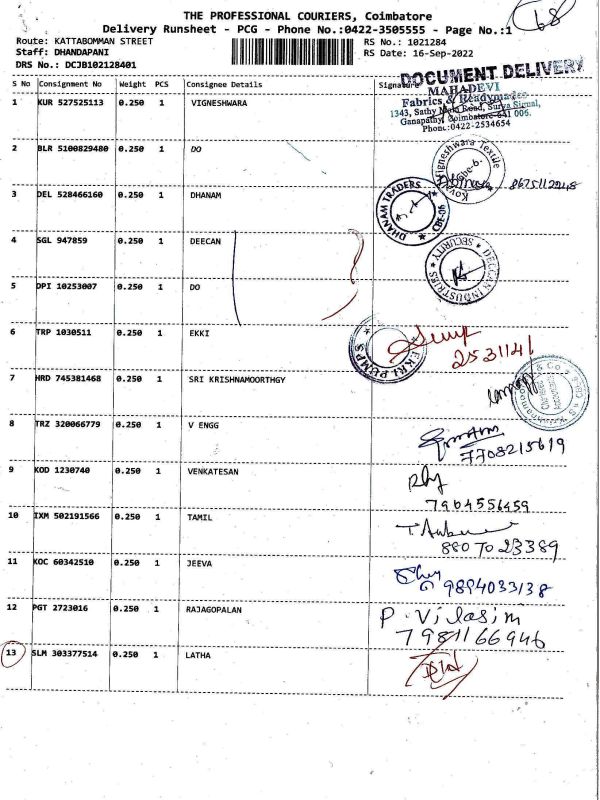 68
THE PROFESSIONAL COURIERS, Coimbatore
Delivery Runsheet - PCG - Phone No.:0422-3505555 - Page No.:1
Route: KATTABOMMAN STREET RS No.: 1021284
Staff: DHANDAPANI RS Date: 16-Sep-2022
DRS No.: DCJB102128401
DOCUMENT DELIVERY
S No Consignment No Weight PCS Consignee Details Signature
MAHADEVI
1 KUR 527525113 0.250 1 VIGNESHWARA
Fabrics & Readymades
1343, Sathy Main Road, Surya Signal,
Ganapathy, Coimbatore-641 006.
Phone:0422-2534654
2 BLR 5100829480 0.250 1 DO
Vigneshwara Textile
Cbe-6.
3 DEL 528466160 0.250 1 DHANAM
DHANAM TRADERS
CBE-06
4 SGL 947859 0.250 1 DEECAN
DECCAN INDUSTRIES
SECURITY
5 DPI 10253007 0.250 1 DO
6 TRP 1030511 0.250 1 EKKI
EKKI PUMPS
2531141
7 HRD 745381468 0.250 1 SRI KRISHNAMOORTHGY
8 TRZ 320066779 0.250 1 V ENGG
7708215619
9 KOD 1230740 0.250 1 VENKATESAN
7904556459
10 IXM 502191566 0.250 1 TAMIL
880 70 23389
11 KOC 60342510 0.250 1 JEEVA
9894033138
12 PGT 2723016 0.250 1 RAJAGOPALAN
P. Vilasim
7981166946
13 SLM 303377514 0.250 1 LATHA